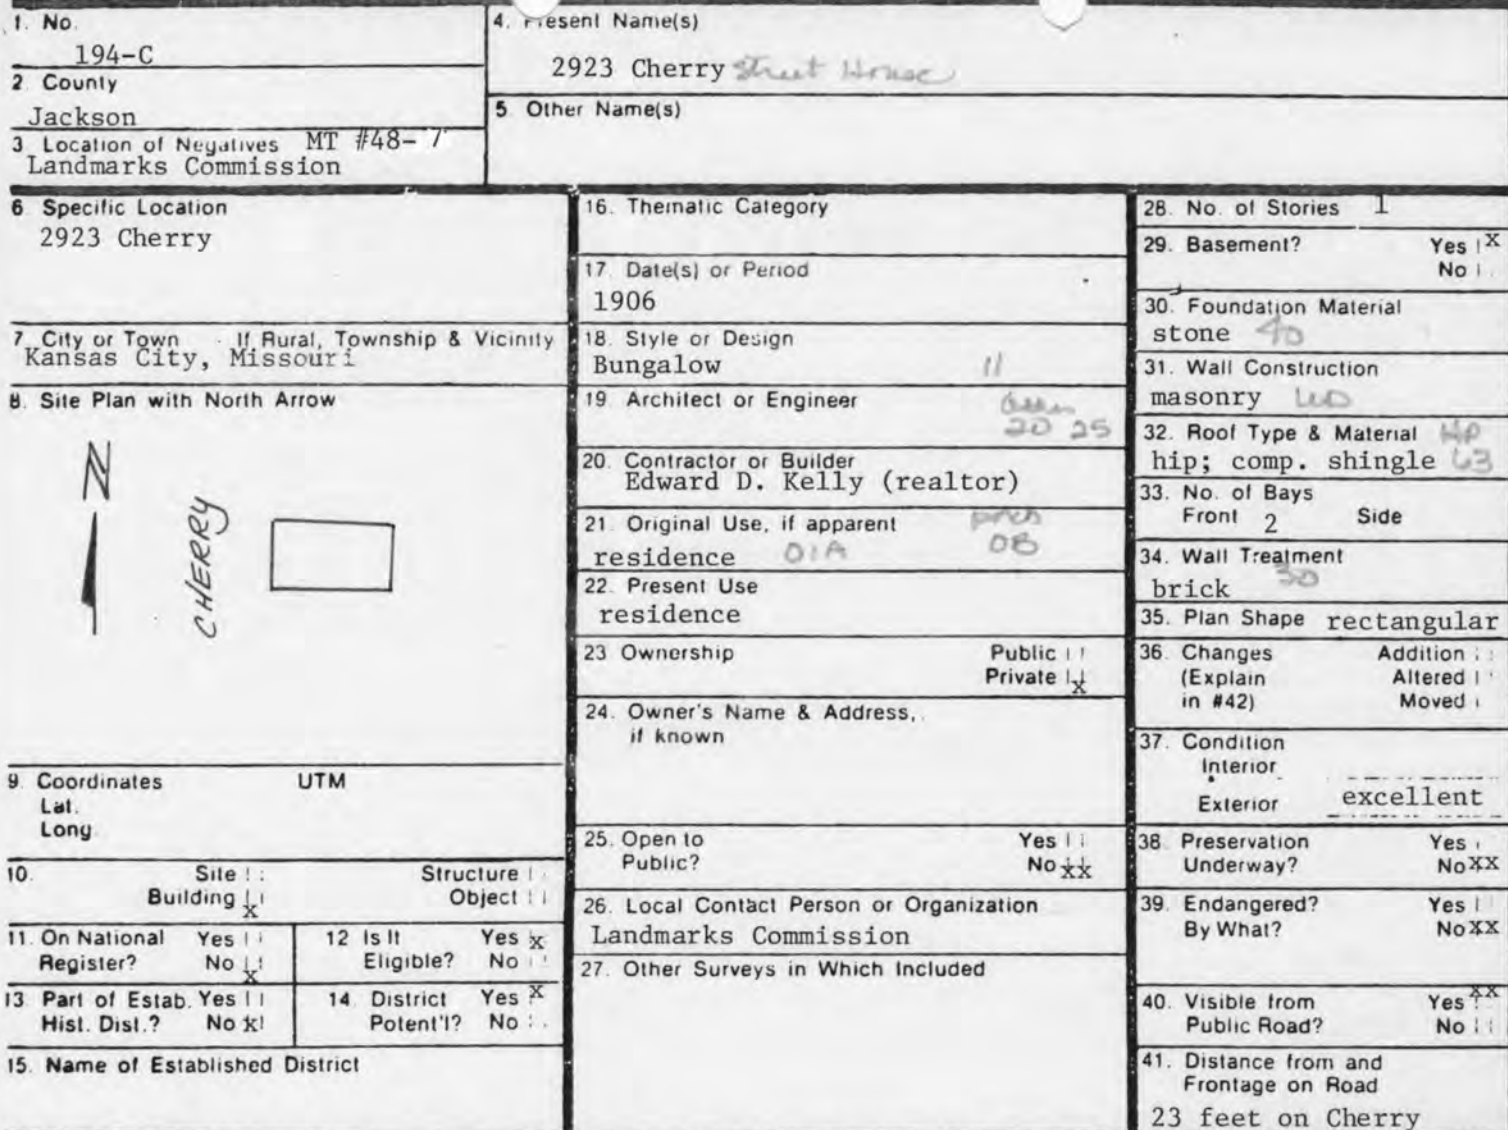 1. No.
194-C
2 County
Jackson
3 Location of Negatives MT #48-7
Landmarks Commission
4. Present Name(s)
2923 Cherry Street House
5 Other Name(s)
6 Specific Location
2923 Cherry
7 City or Town If Rural, Township & Vicinity
Kansas City, Missouri
8. Site Plan with North Arrow
N
CHERRY
9. Coordinates UTM
Lat.
Long.
10. Site Structure
Building X Object
11. On National Yes
Register? No X
12 Is It Yes X
Eligible? No
13 Part of Estab. Yes
Hist. Dist.? No X
14. District Yes X
Potent'l? No
15. Name of Established District
16. Thematic Category
17. Date(s) or Period
1906
18. Style or Design
Bungalow 11
19. Architect or Engineer
20 25
20. Contractor or Builder
Edward D. Kelly (realtor)
21. Original Use, if apparent
residence 01A 0B
22. Present Use
residence
23 Ownership Public
Private X
24. Owner's Name & Address,
if known
25. Open to Yes
Public? No XX
26. Local Contact Person or Organization
Landmarks Commission
27. Other Surveys in Which Included
28. No. of Stories 1
29. Basement? Yes X
No
30. Foundation Material
stone 40
31. Wall Construction
masonry
32. Roof Type & Material HP
hip; comp. shingle 63
33. No. of Bays
Front 2 Side
34. Wall Treatment
brick 30
35. Plan Shape rectangular
36. Changes Addition
(Explain Altered
in #42) Moved
37. Condition
Interior
Exterior excellent
38. Preservation Yes
Underway? No XX
39. Endangered? Yes
By What? No XX
40. Visible from Yes XX
Public Road? No
41. Distance from and
Frontage on Road
23 feet on Cherry